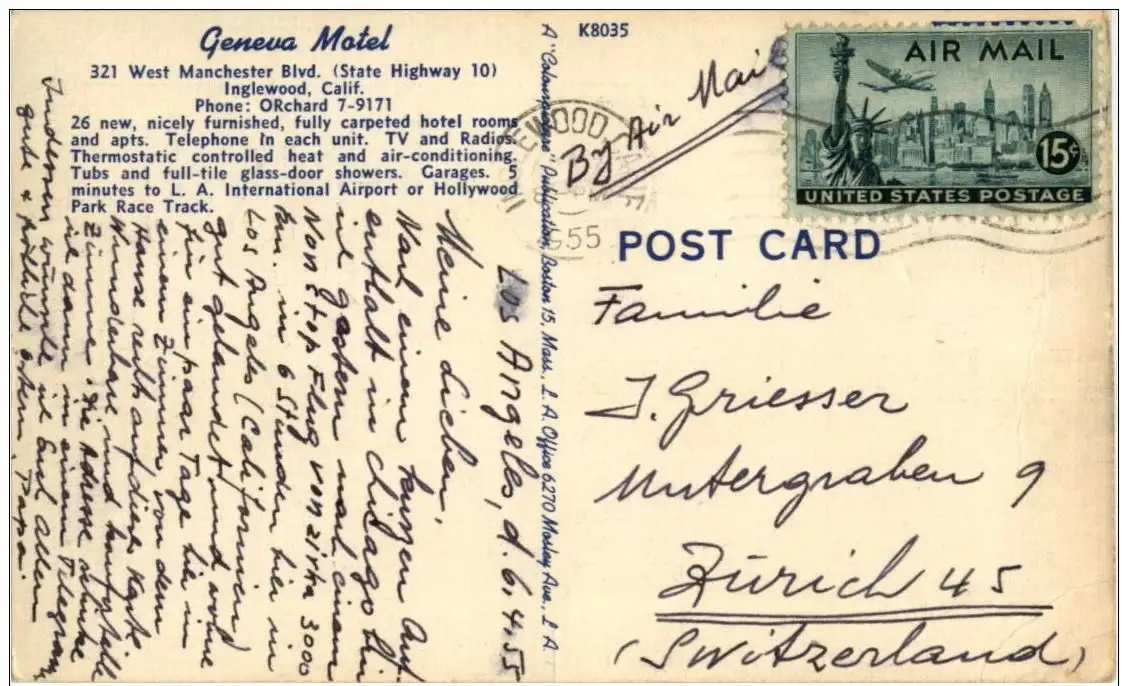 Geneva Motel
321 West Manchester Blvd. (State Highway 10)
Inglewood, Calif.
Phone: ORchard 7-9171
26 new, nicely furnished, fully carpeted hotel rooms
and apts. Telephone in each unit. TV and Radios.
Thermostatic controlled heat and air-conditioning.
Tubs and full-tile glass-door showers. Garages. 5
minutes to L. A. International Airport or Hollywood
Park Race Track.
Los Angeles, d. 6.4.55
Meine Lieben,
Nach einem kurzen Auf-
enthalt in Chicago bin
ich gestern nach einem
Nonstop Flug von zirka 3000
km. in 6 Stunden hier in
Los Angeles (Californien)
gut gelandet und wohne
für ein paar Tage hier in
einem Zimmer von dem
Hause rechts auf dieser Karte
Wunderbare und
Zimmer. Die Adresse schicke
ich dann in einem Telegram,
Indessen wünsche ich Euch allen
gute & fröhliche Ostern, Papa.
A "Colourpicture" Publication, Boston 15, Mass., L. A. Office 6270 Mosley Ave., L A
K8035
By Air Mail
AIR MAIL
15¢
UNITED STATES POSTAGE
1955
POST CARD
Familie
J. Griesser
Untergraben 9
Zürich 45
(Switzerland)